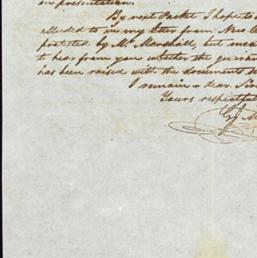 on presentation.
By next Packet I hope to
alluded to in my letter from New
protested by Mr Marshall, but
to hear from you whether the
has been raised with the documents
I remain dear Sir
Yours respectful